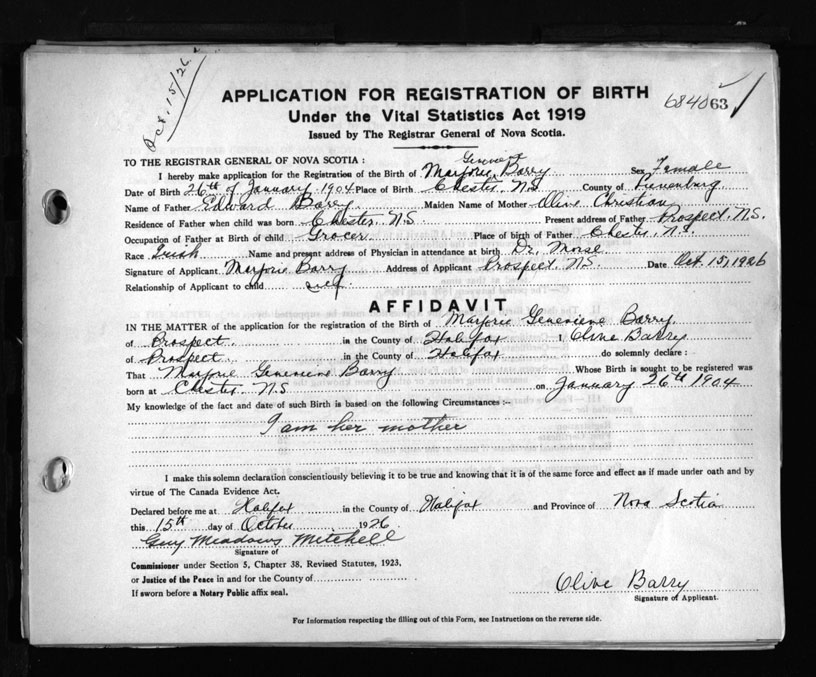 Oct. 15/26.
APPLICATION FOR REGISTRATION OF BIRTH
6840063
Under the Vital Statistics Act 1919
Issued by The Registrar General of Nova Scotia.
TO THE REGISTRAR GENERAL OF NOVA SCOTIA :
I hereby make application for the Registration of the Birth of Marjorie Barry Sex Female
Date of Birth 26th of January, 1904 Place of Birth Chester, N.S. County of Lunenburg
Name of Father Edward Barry Maiden Name of Mother Olive Christian
Residence of Father when child was born Chester, N.S. Present address of Father Prospect, N.S.
Occupation of Father at Birth of child Grocer. Place of birth of Father Chester, N.S.
Race Irish Name and present address of Physician in attendance at birth Dr. Morse
Signature of Applicant Marjorie Barry Address of Applicant Prospect, N.S. Date Oct. 15, 1926
Relationship of Applicant to child self.
AFFIDAVIT
IN THE MATTER of the application for the registration of the Birth of Marjorie Genevieve Barry
of Prospect in the County of Halifax I, Olive Barry
of Prospect in the County of Halifax do solemnly declare :
That Marjorie Genevieve Barry Whose Birth is sought to be registered was
born at Chester N.S on January 26th 1904
My knowledge of the fact and date of such Birth is based on the following Circumstances :--
I am her mother
I make this solemn declaration conscientiously believing it to be true and knowing that it is of the same force and effect as if made under oath and by
virtue of The Canada Evidence Act.
Declared before me at Halifax in the County of Halifax and Province of Nova Scotia
this 15th day of October 1926
Guy Meadows Mitchell
Signature of
Commissioner under Section 5, Chapter 38, Revised Statutes, 1923,
or Justice of the Peace in and for the County of
If sworn before a Notary Public affix seal.
Olive Barry
Signature of Applicant.
For Information respecting the filling out of this Form, see Instructions on the reverse side.